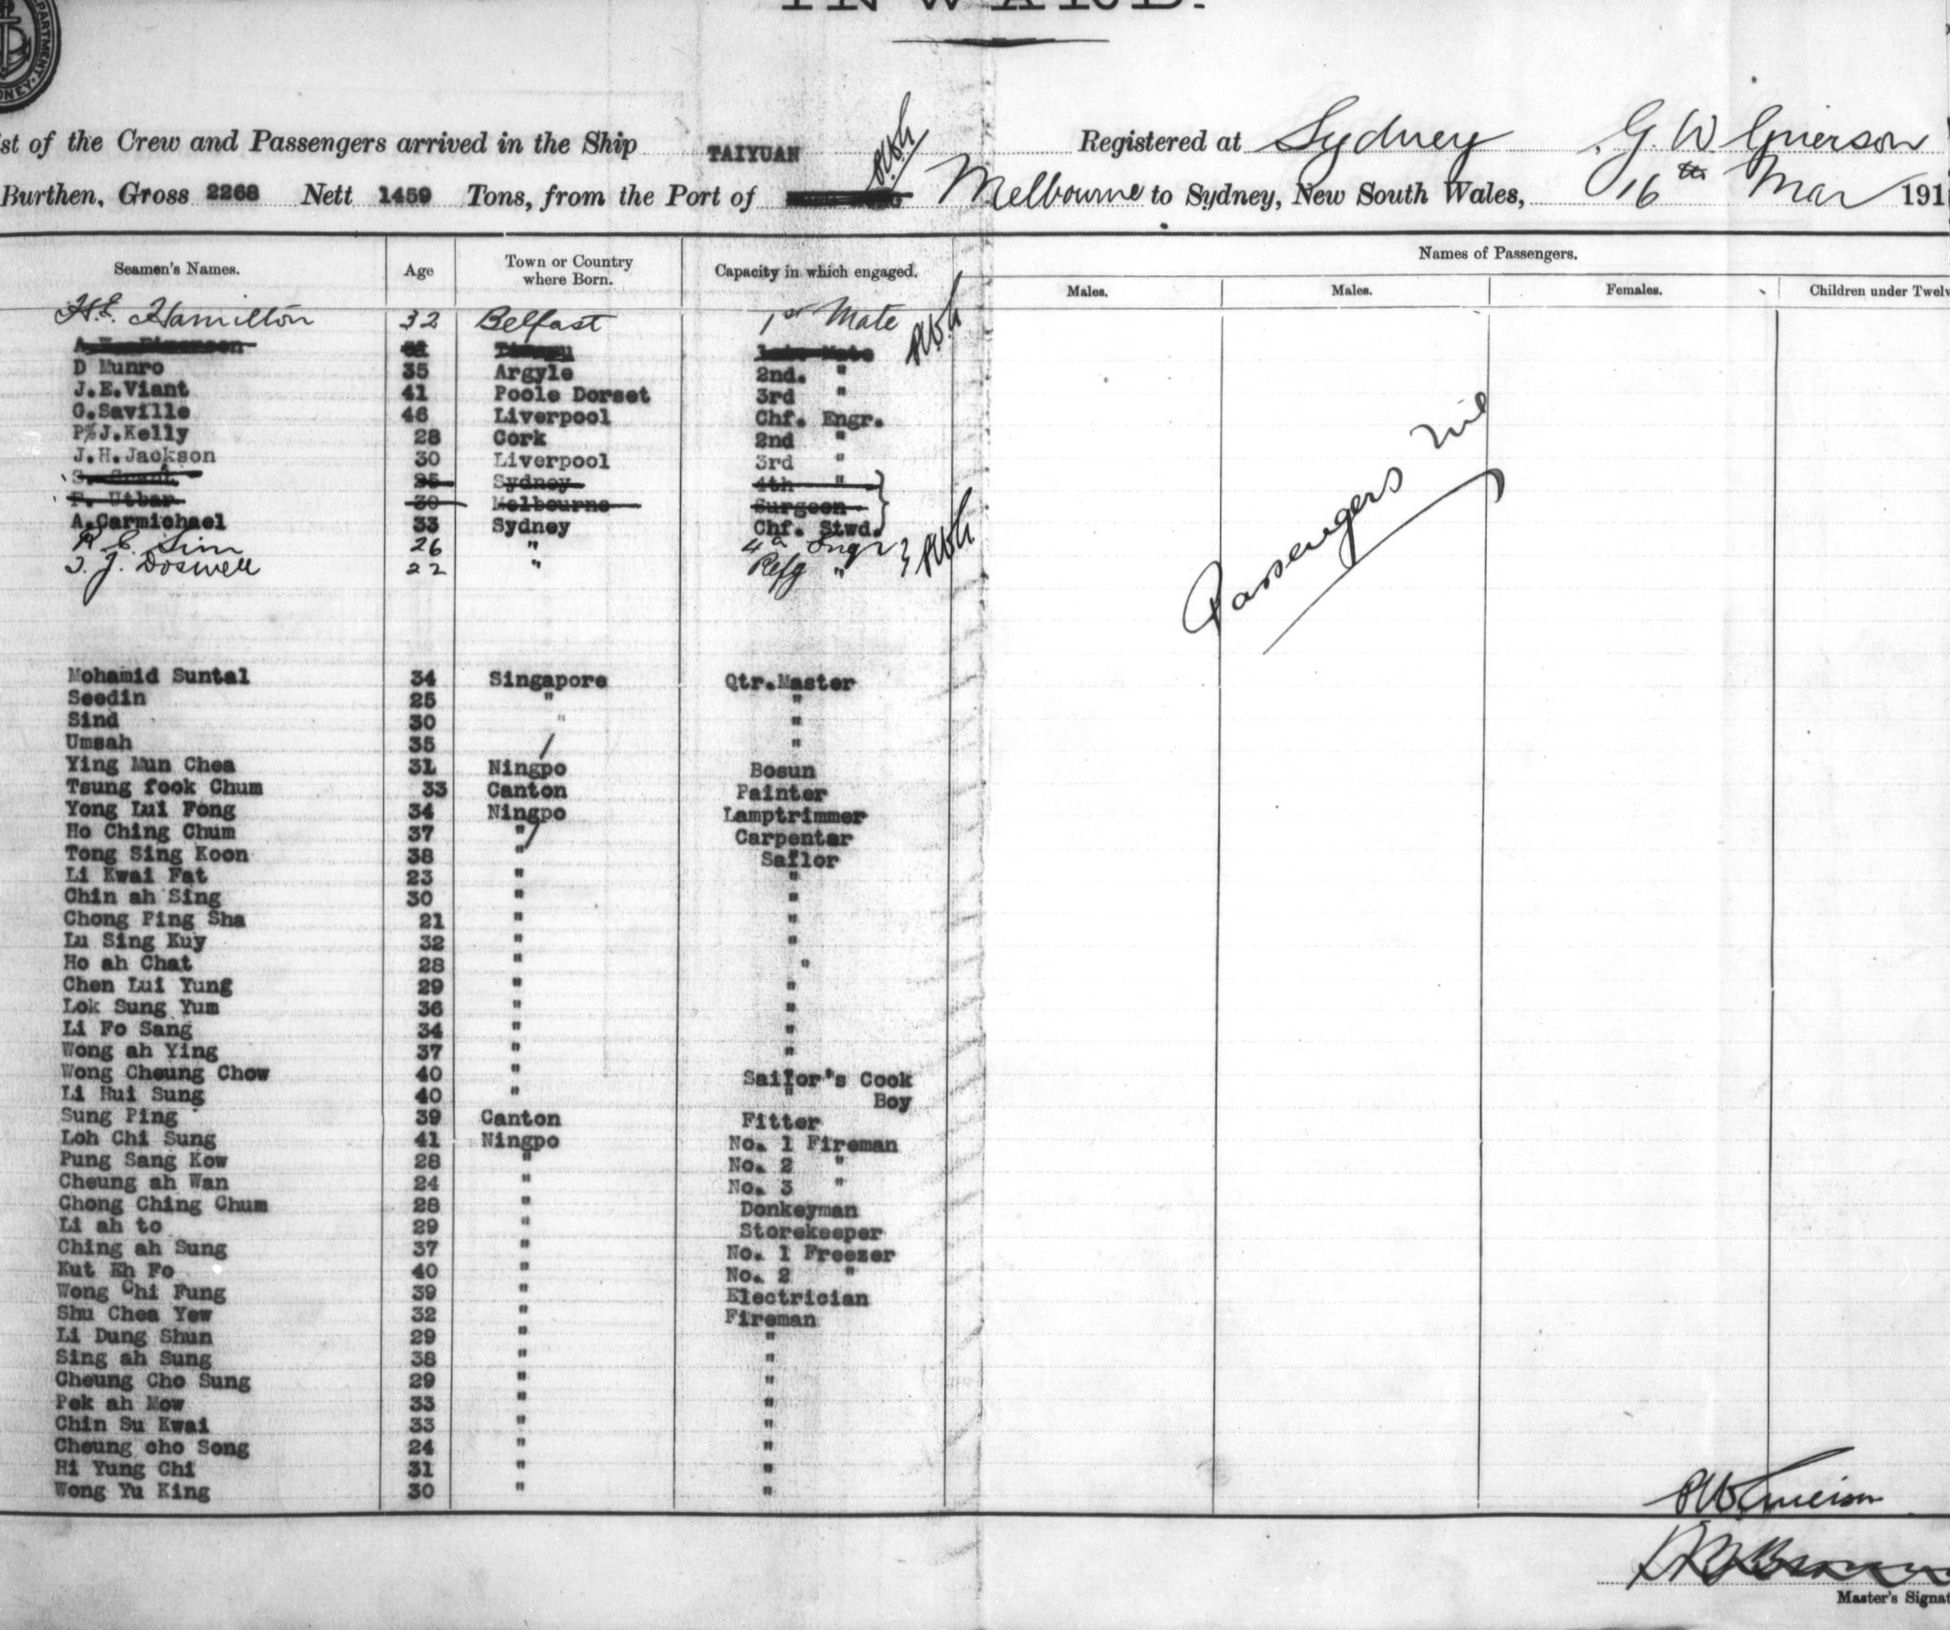 INWARD.
PARTMENT. DNEY.
st of the Crew and Passengers arrived in the Ship TAIYUAN Registered at Sydney G. W. Grierson
Burthen, Gross 2268 Nett 1459 Tons, from the Port of Melbourne to Sydney, New South Wales, 16th Mar 191
Seamen's Names. Age Town or Country where Born. Capacity in which engaged. Names of Passengers.
Males. Males. Females. Children under Twelv
H.E. Hamilton 32 Belfast 1st Mate
D Munro 35 Argyle 2nd. "
J.E.Viant 41 Poole Dorset 3rd "
G.Saville 46 Liverpool Chf. Engr.
P J.Kelly 28 Cork 2nd "
J.H.Jackson 30 Liverpool 3rd "
S. Grant 25 Sydney 4th "
F. Utber 30 Melbourne Surgeon
A.Carmichael 33 Sydney Chf. Stwd.
R. E. Sim 26 " 4th Engr
J. Doswell 22 " Refg "
Passengers nil
Mohamid Suntal 34 Singapore Qtr.Master
Seedin 25 " "
Sind 30 " "
Umsah 35 "
Ying Mun Chea 31 Ningpo Bosun
Tsung fook Chum 33 Canton Painter
Yong Lui Fong 34 Ningpo Lamptrimmer
Ho Ching Chum 37 " Carpenter
Tong Sing Koon 38 " Sailor
Li Kwai Fat 23 " "
Chin ah Sing 30 " "
Chong Ping Sha 21 " "
Lu Sing Kuy 32 " "
Ho ah Chat 28 " "
Chen Lui Yung 29 " "
Lok Sung Yum 36 " "
Li Fo Sang 34 " "
Wong ah Ying 37 " "
Wong Cheung Chow 40 " Sailor's Cook
Li Hui Sung 40 " " Boy
Sung Ping 39 Canton Fitter
Loh Chi Sung 41 Ningpo No. 1 Fireman
Pung Sang Kow 28 " No. 2 "
Cheung ah Wan 24 " No. 3 "
Chong Ching Chum 28 " Donkeyman
Li ah to 29 " Storekeeper
Ching ah Sung 37 " No. 1 Freezer
Kut Eh Fo 40 " No. 2 "
Wong Chi Fung 39 " Electrician
Shu Chea Yew 32 " Fireman
Li Dung Shun 29 " "
Sing ah Sung 38 " "
Cheung Cho Sung 29 " "
Pek ah Mow 33 " "
Chin Su Kwai 33 " "
Cheung cho Song 24 " "
Hi Yung Chi 31 " "
Wong Yu King 30 " "
Master's Signat